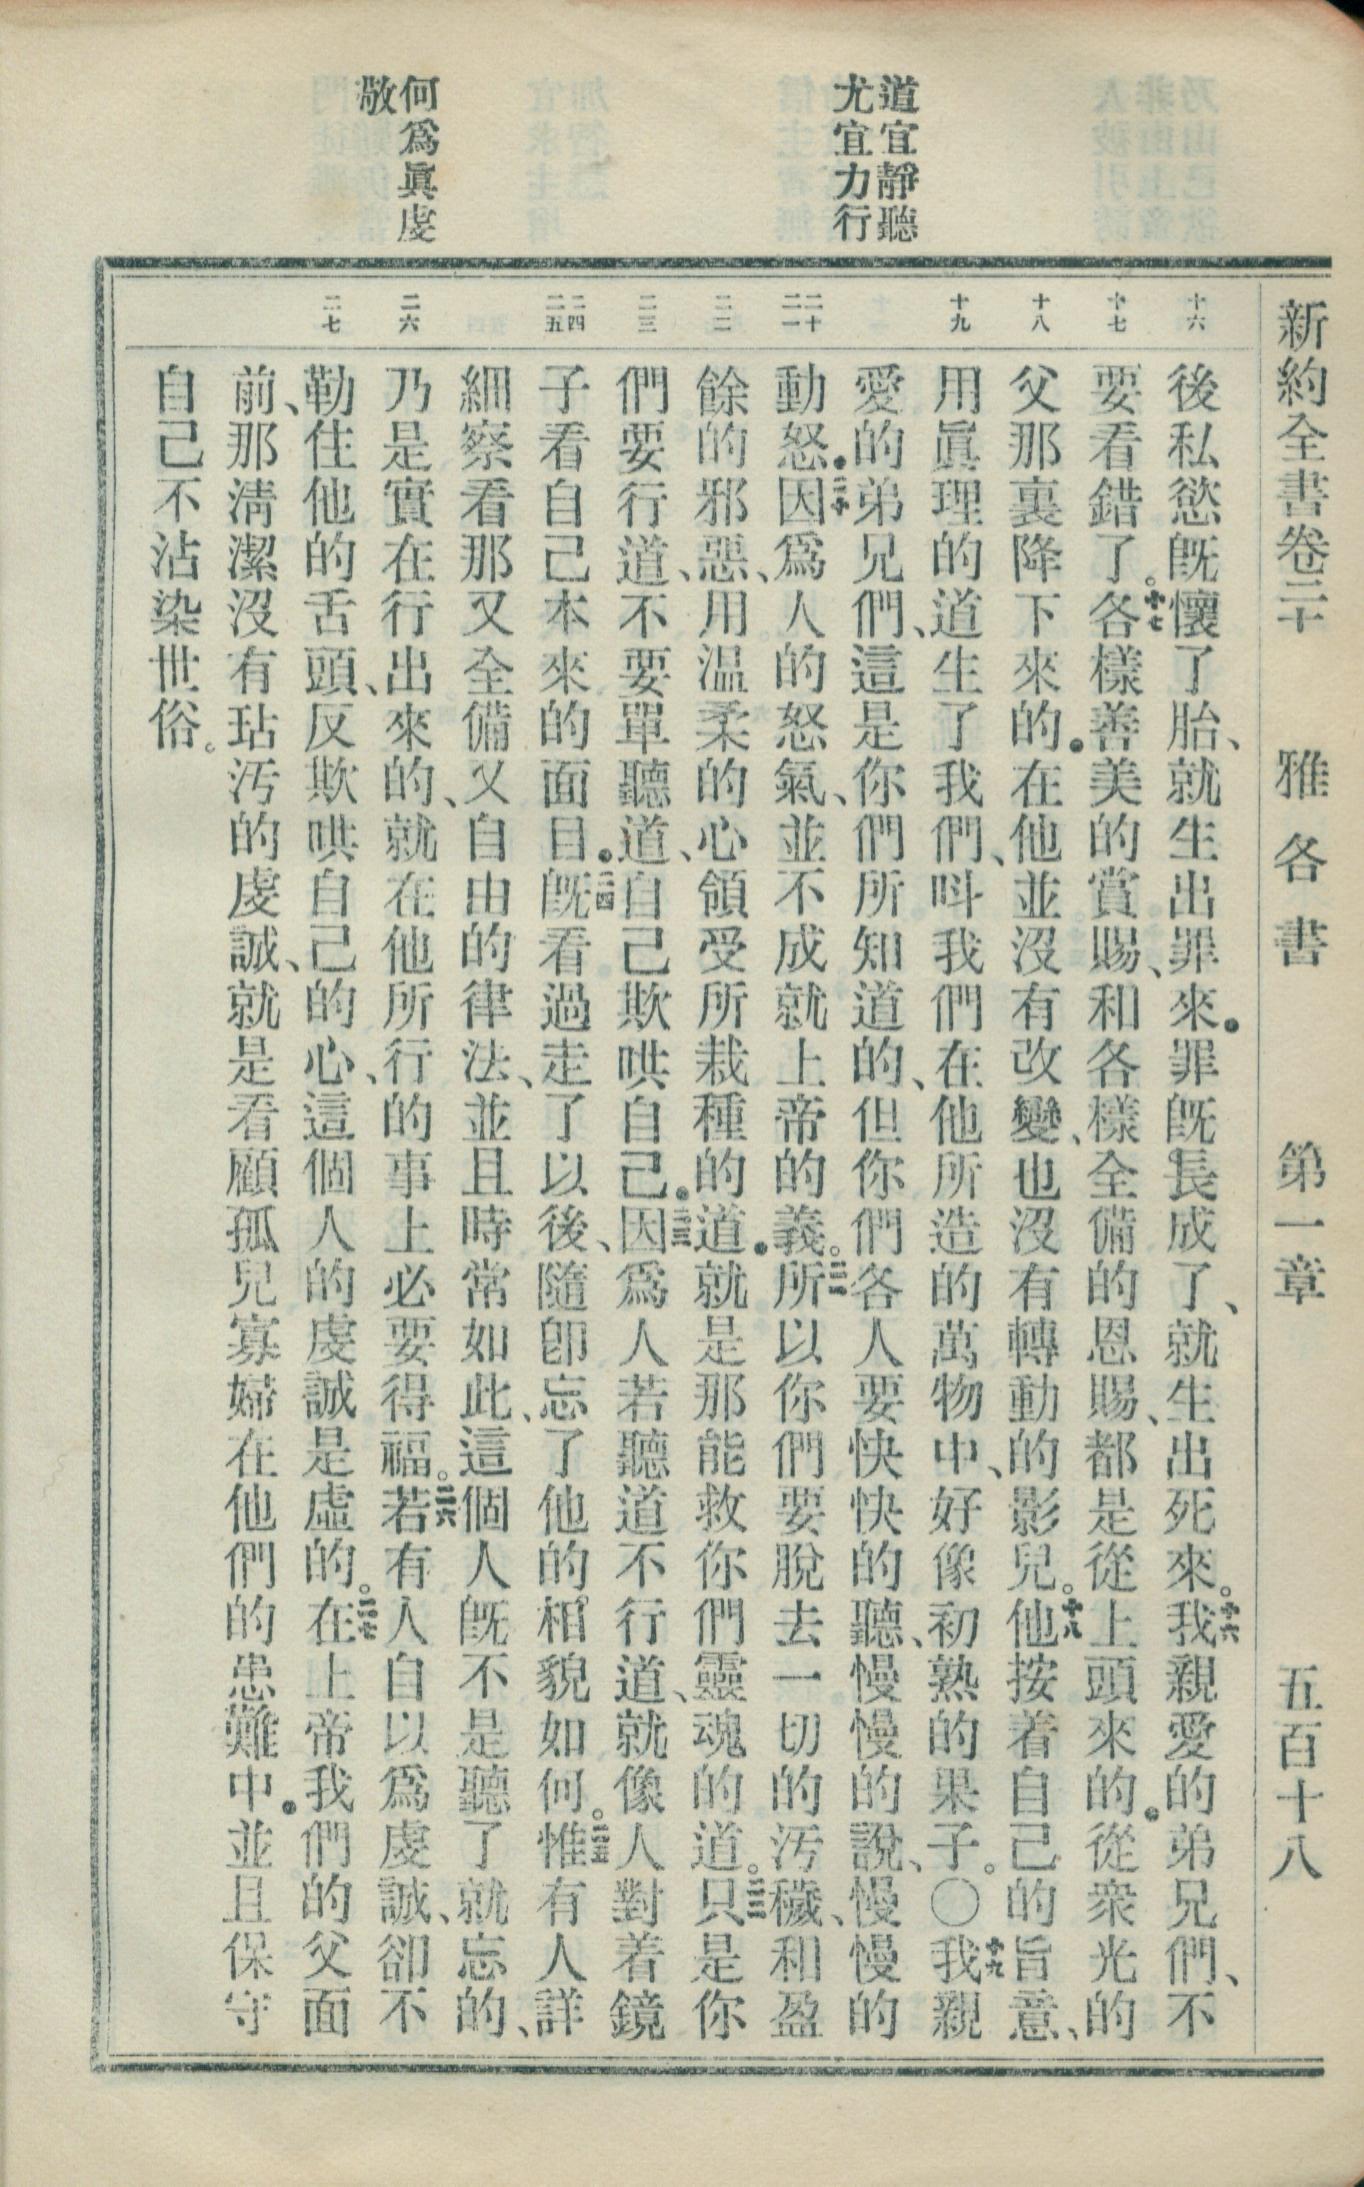 新約全書卷二十　雅各書　第一章　五百十八
道宜靜聽
尤宜力行
何爲眞虔
敬
十六
十七
十八
十九
二十
二一
二二
二三
二四
二五
二六
二七
後私慾旣懷了胎、就生出罪來．罪旣長成了、就生出死來。十六我親愛的弟兄們、不
要看錯了。十七各樣善美的賞賜、和各樣全備的恩賜、都是從上頭來的．從衆光的
父那裏降下來的．在他並沒有改變、也沒有轉動的影兒。十八他按着自己的旨意、
用眞理的道生了我們、呌我們在他所造的萬物中、好像初熟的果子。〇十九我親
愛的弟兄們、這是你們所知道的、但你們各人要快快的聽、慢慢的說、慢慢的
動怒．二十因爲人的怒氣、並不成就上帝的義。二一所以你們要脫去一切的污穢、和盈
餘的邪惡、用温柔的心領受所栽種的道．就是那能救你們靈魂的道。二二只是你
們要行道、不要單聽道、自己欺哄自己．二三因爲人若聽道不行道、就像人對着鏡
子看自己本來的面目．二四旣看過走了以後、隨卽忘了他的相貌如何。二五惟有人詳
細察看那又全備又自由的律法、並且時常如此、這個人旣不是聽了就忘的、
乃是實在行出來的、就在他所行的事上必要得福。二六若有人自以爲虔誠、卻不
勒住他的舌頭、反欺哄自己的心、這個人的虔誠是虛的。二七在上帝我們的父面
前、那淸潔沒有玷污的虔誠、就是看顧孤兒寡婦在他們的患難中．並且保守
自己不沾染世俗。